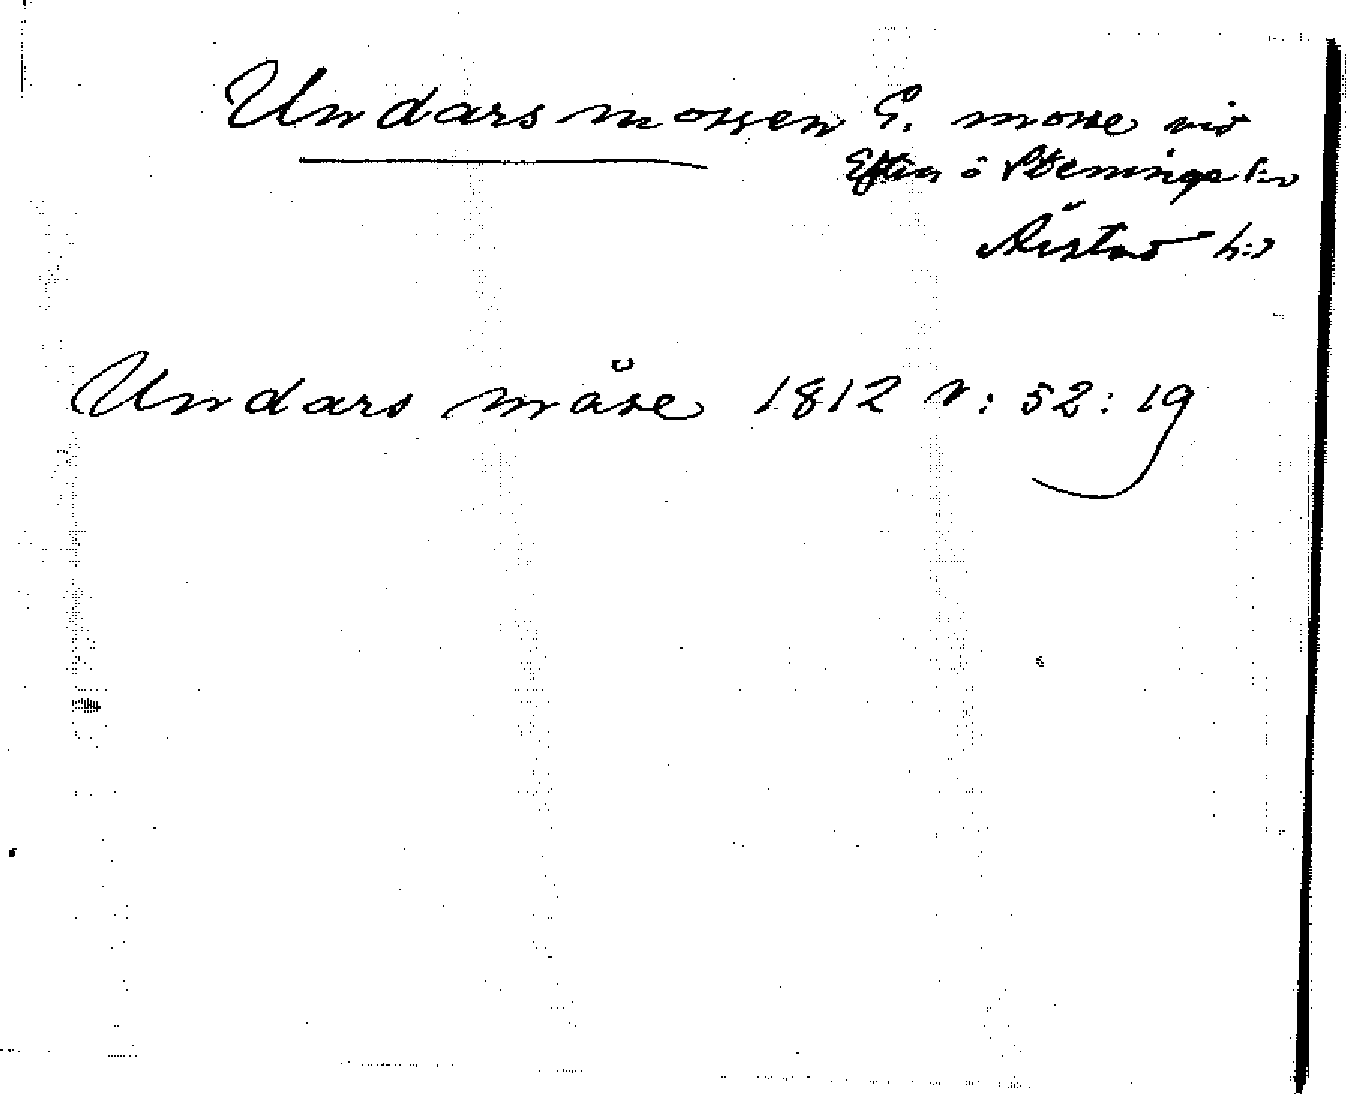 Undarsmossen G. mosse vid
Eftra o Steninge s:n
Årstad h:d
Undars måse 1812 v: 52: 19